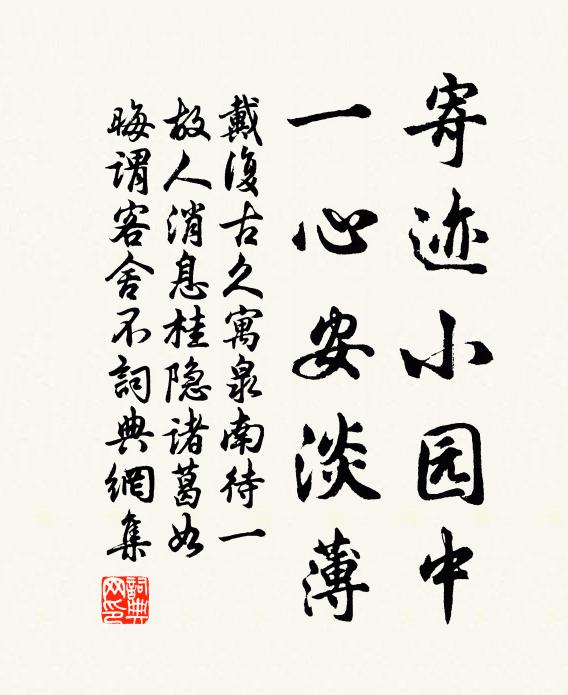 寄迹小园中
一心安淡薄
戴復古久寓泉南待一
故人消息桂隐诸葛如
晦谓客舍不詞典網集
詞典
网印